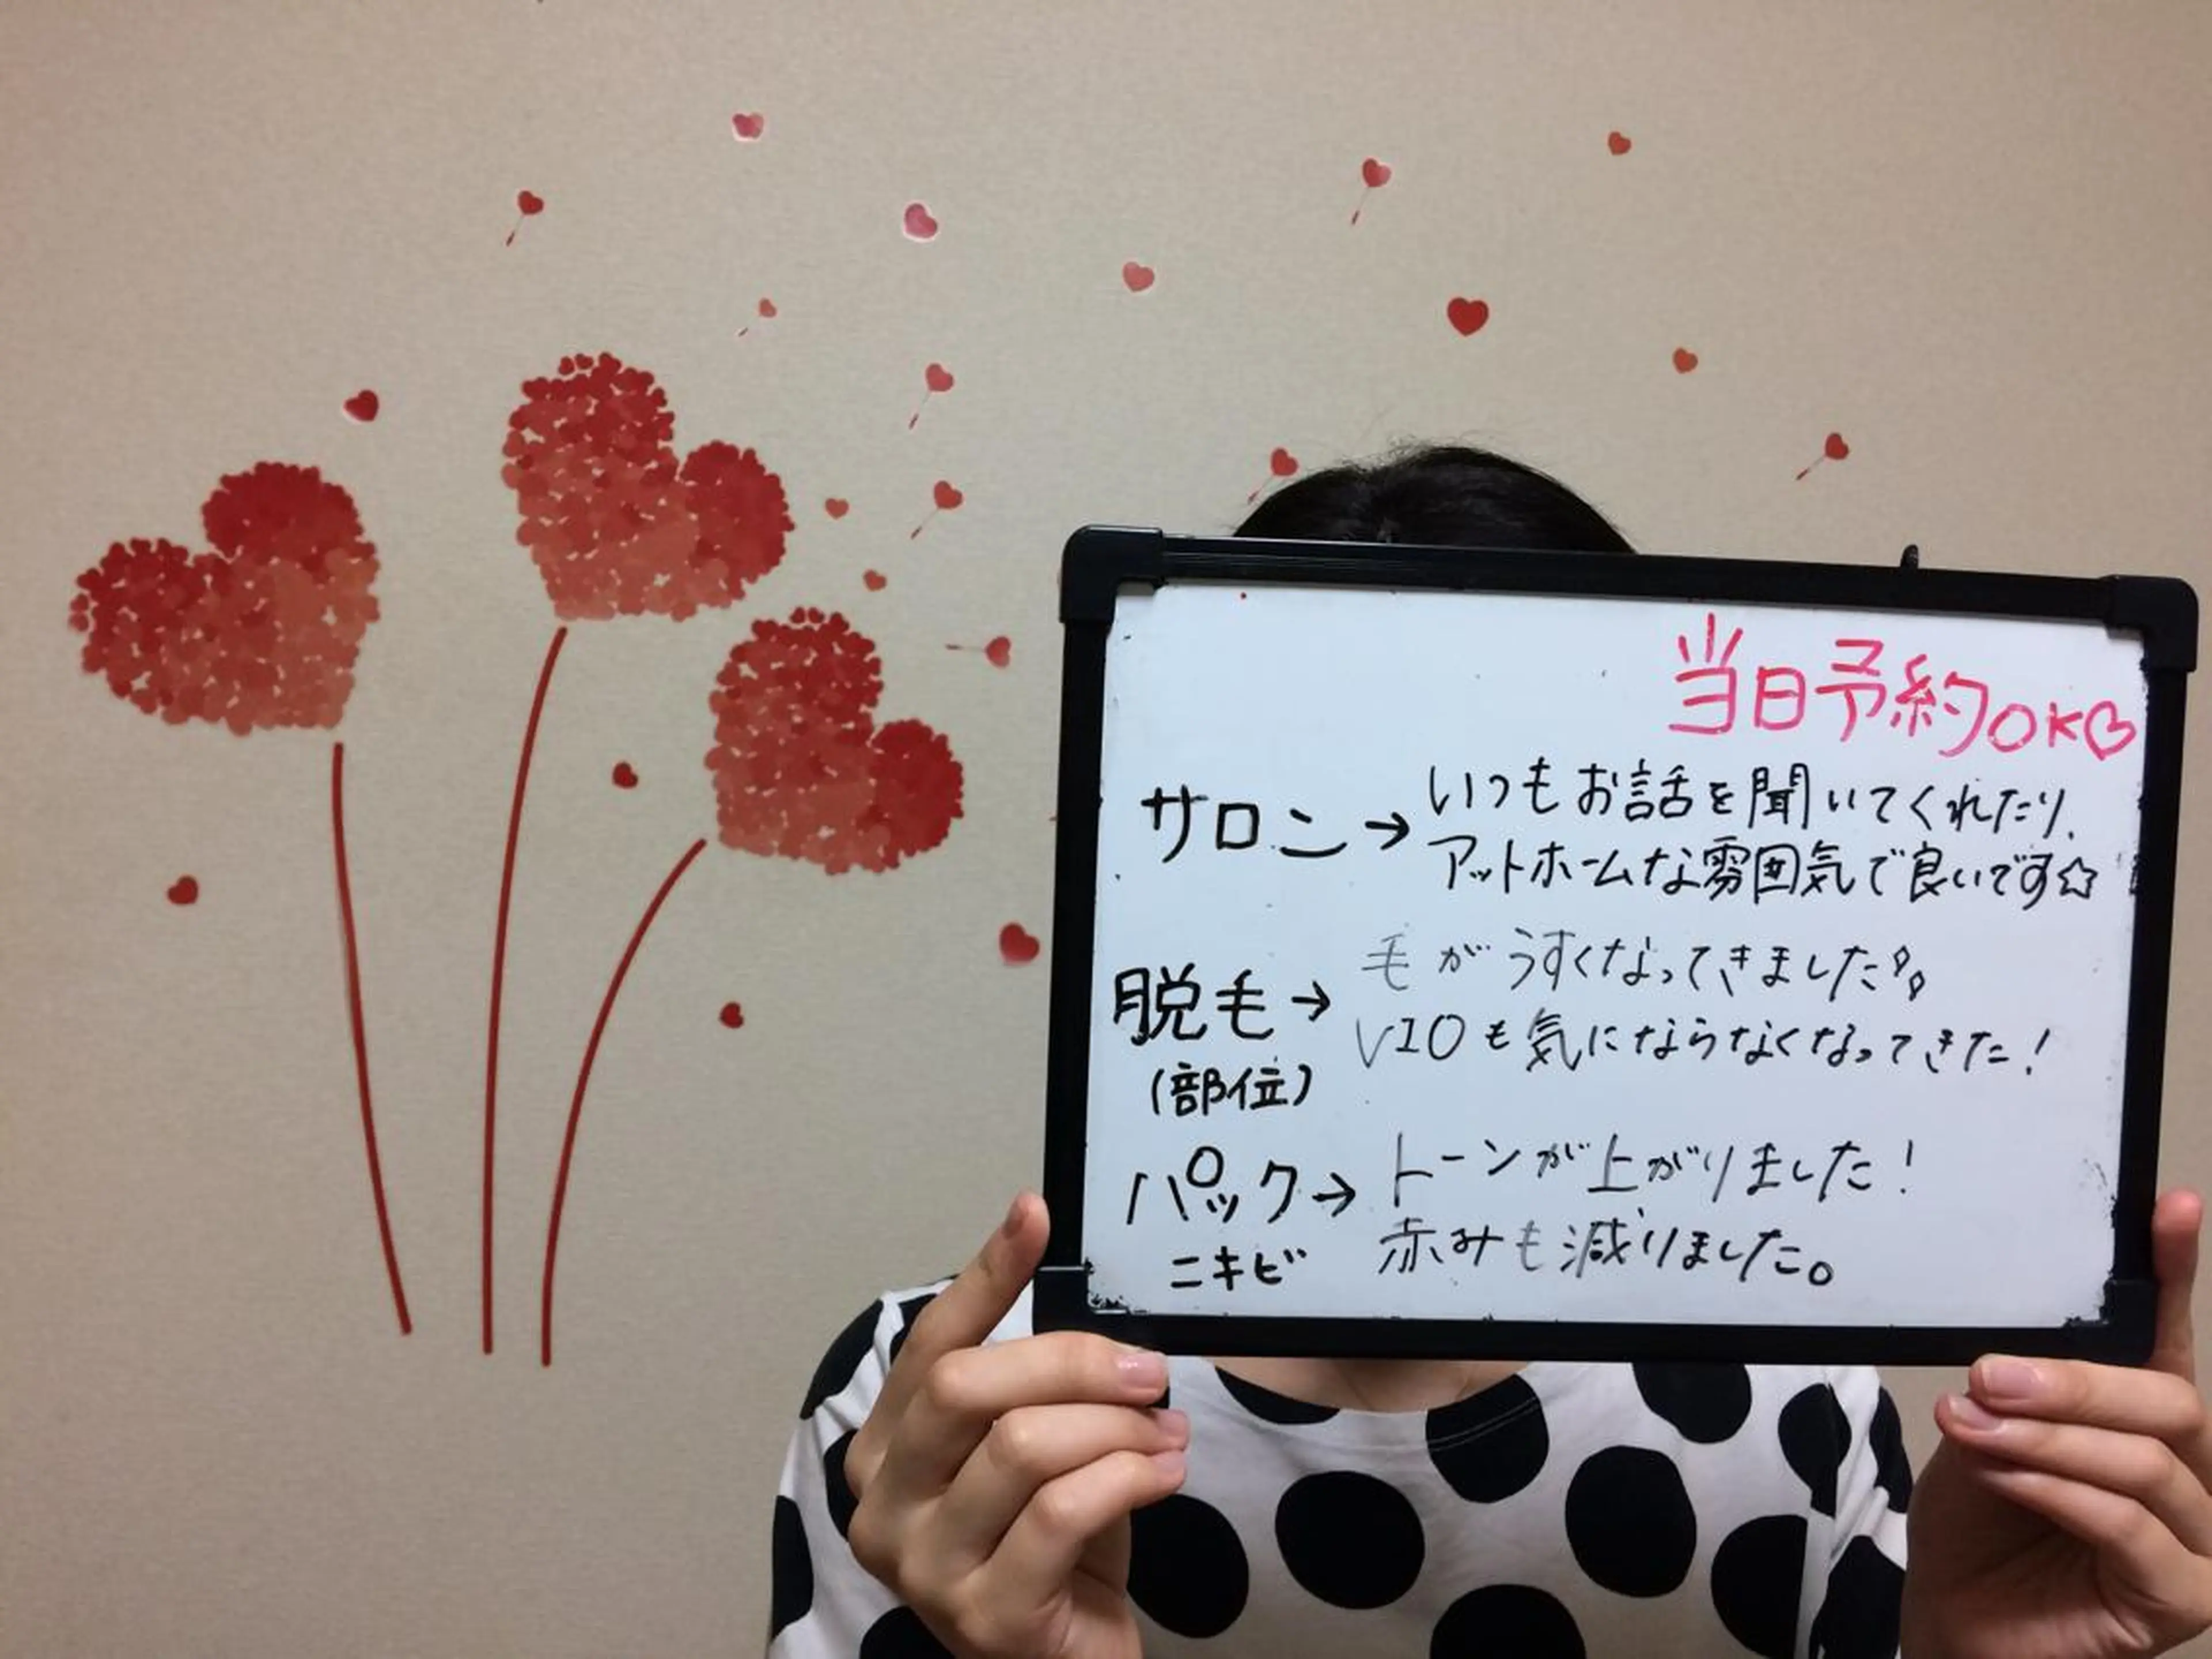 当日予約OK♡
サロン→いつもお話を聞いてくれたり、
アットホームな雰囲気で良いです☆
脱毛→毛がうすくなってきました
(部位)
VIOも気にならなくなってきた!
パック→トーンが上がりました!
ニキビ
赤みも減りました。